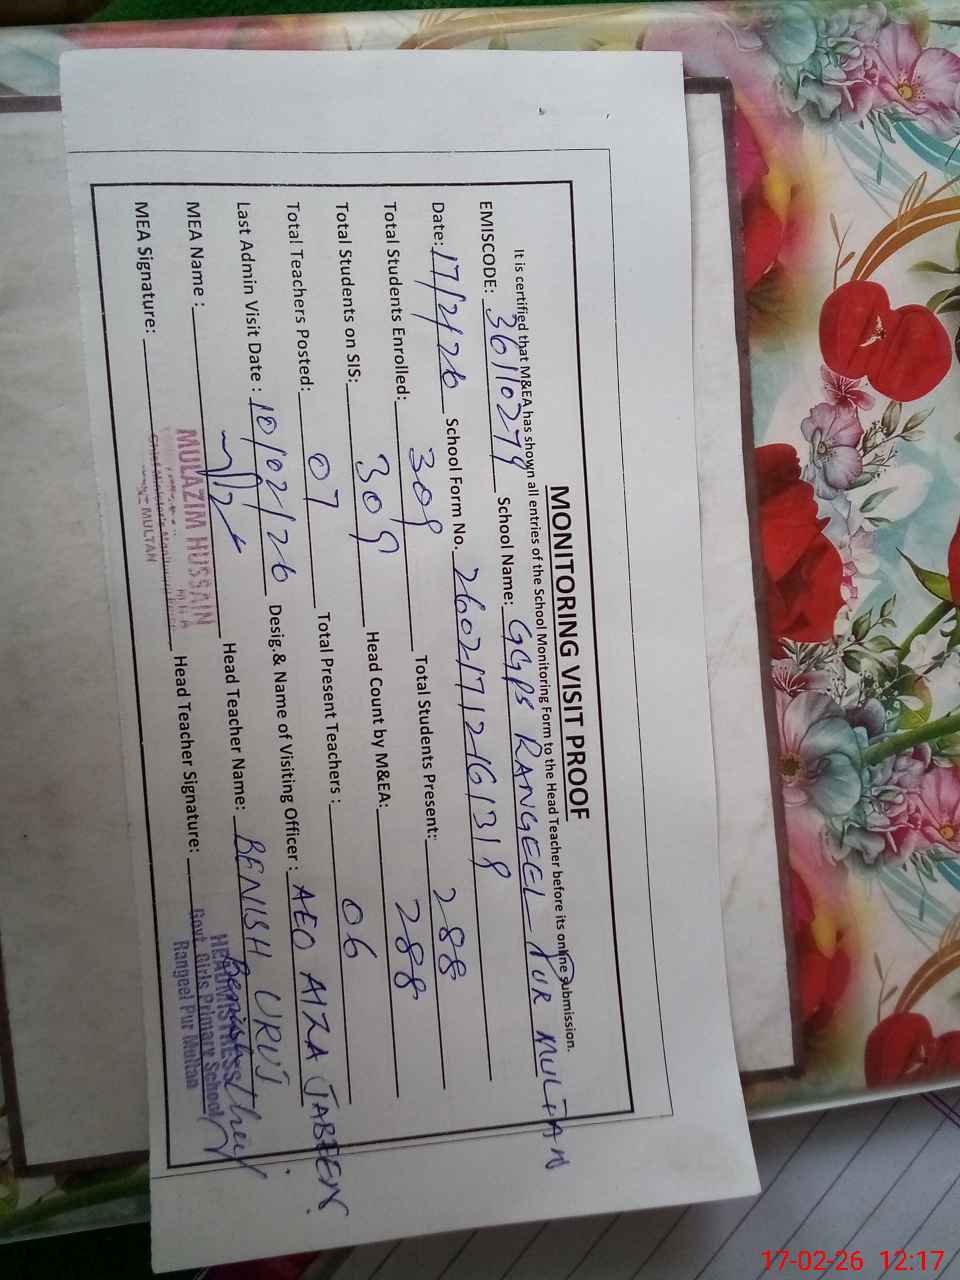 MONITORING VISIT PROOF
It is certified that M&EA has shown all entries of the School Monitoring Form to the Head Teacher before its online submission.
EMISCODE: 36110279 School Name: GGPS RANGEEL PUR MULTAN
Date: 17/2/26 School Form No. 26021712161318
Total Students Enrolled: 309 Total Students Present: 288
Total Students on SIS: 309 Head Count by M&EA: 288
Total Teachers Posted: 07 Total Present Teachers : 06
Last Admin Visit Date : 10/02/26 Desig.& Name of Visiting Officer : AEO AIZA JABEEN
MEA Name : Head Teacher Name: BENISH URUJ
MULAZIM HUSSAIN
MULTAN
MEA Signature: Head Teacher Signature:
HEADMISTRESS
Govt. Girls Primary School
Rangeel Pur Multan
17-02-26 12:17